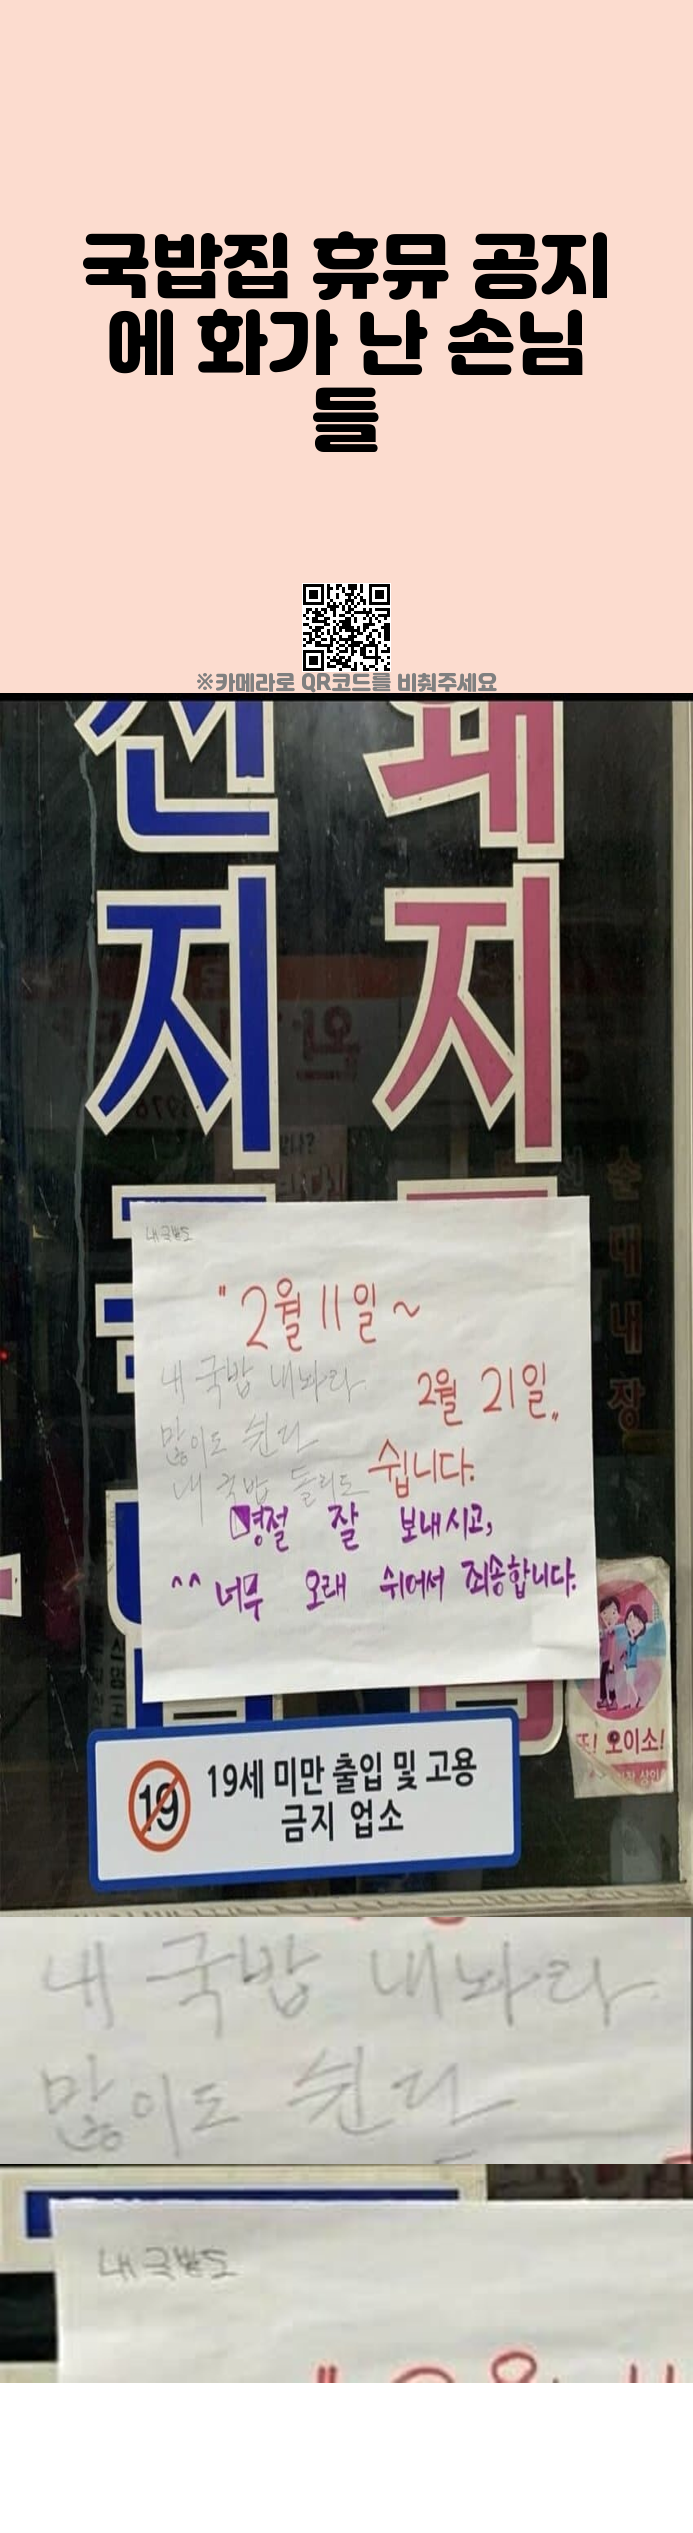 국밥집 휴뮤 공지
에 화가 난 손님
들
※카메라로 QR코드를 비춰주세요
지 지
내 국밥도
"2월 11일 ~
내 국밥 내놔라
2월 21일"
많이도 쉰다
쉽니다.
내 국밥 돌리도
명절 잘 보내시고,
^^ 너무 오래 쉬어서 죄송합니다.
순대내장
또! 오이소!
19
19세 미만 출입 및 고용
금지 업소
내 국밥 내놔라
많이도 쉰다
내 국밥도